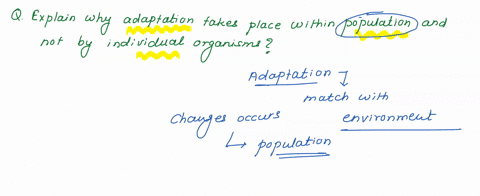 Q. Explain why adaptation takes place within population and
not by individual organisms?
Adaptation
match with
Changes occurs environment
↳ population